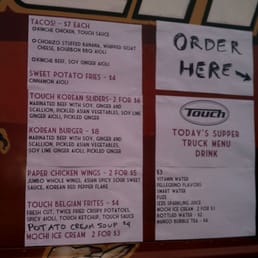 TACOS! - $7 EACH
KIMCHE CHICKEN, TOUCH SAUCE
CHORIZO STUFFED BANANA, WHIPPED GOAT
CHEESE, BOURBON BBQ AIOLI
KIMCHE BEEF, SOY GINGER AIOLI
SWEET POTATO FRIES - $4
CINNAMON AIOLI
TOUCH KOREAN SLIDERS-2 FOR $6
MARINATED BEEF WITH SOY, GINGER AND
SCALLION, PICKLED ASIAN VEGETABLES, SOY
LIME GINGER AIOLI, PICKLED GINGER
KOREAN BURGER - $8
MARINATED BEEF WITH SOY, GINGER AND
SCALLION, PICKLED ASIAN VEGETABLES,
SOY LIME GINGER AIOLI, PICKLED GINGER
PAPER CHICKEN WINGS - 2 FOR $5
JUMBO WHOLE WINGS, ASIAN SPICY SOUR SWEET
SAUCE, KOREAN RED PEPPER FLAKE
TOUCH BELGIAN FRITES - $4
FRESH CUT, TWICE FRIED CRISPY POTATOES,
SPICY AIOLI, TOUCH KETCHUP, TOUCH SAUCE
POTATO CREAM SOUP $4
MOCHI ICE CREAM 2 FOR $3
ORDER
HERE
Touch
TODAY'S SUPPER
TRUCK MENU
DRINK
$3
VITAMIN WATER
PELLEGRINO FLAVORS
SMART WATER
FUZE
IZZE SPARKLING JUICE
MOCHI ICE CREAM - 2 FOR $3
BOTTLED WATER - $2
MANGO BUBBLE TEA - $4